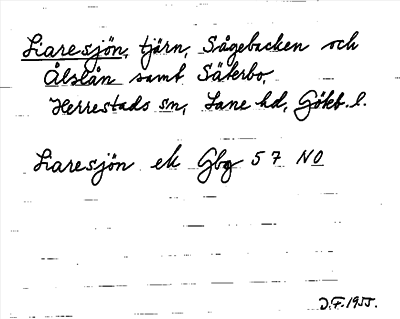 Liaresjön, tjärn, Sågebacken och
Ålslån samt Säterbo,
Herrestads sn, Lane hd, Göteb. l.
Liaresjön ek Gbg 57 NO
D.F. 1955.